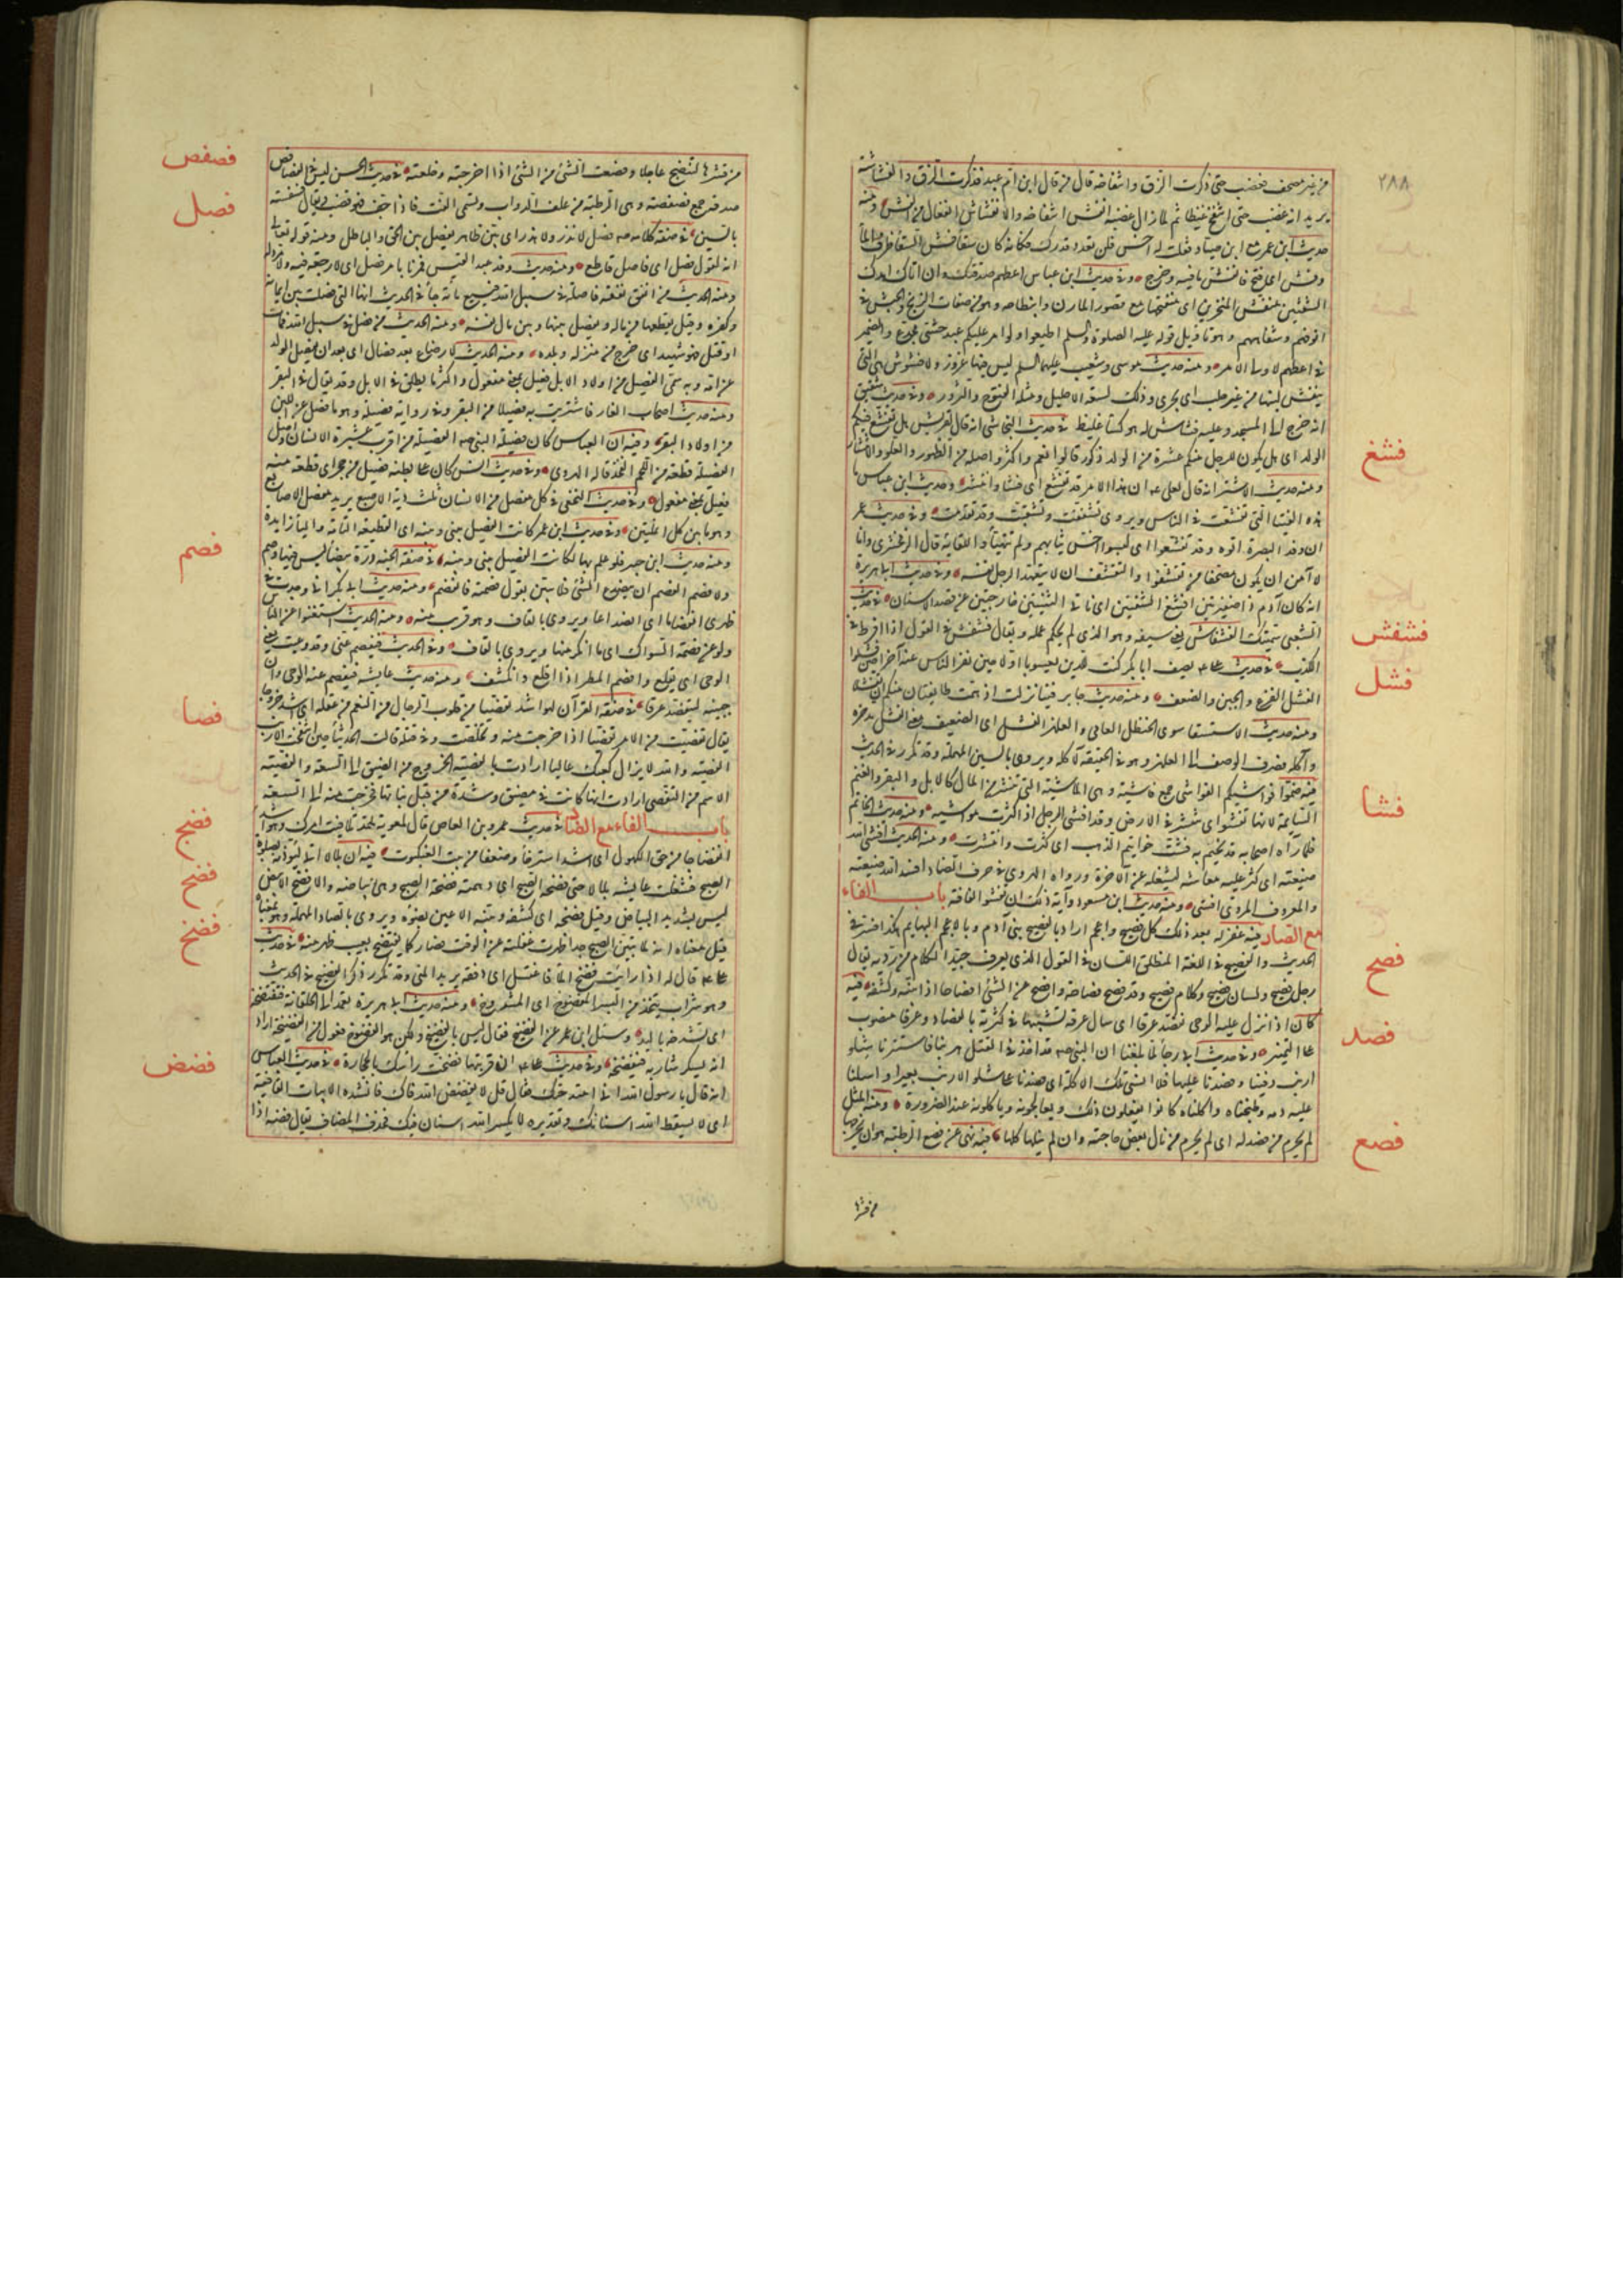 ٢٨٨
من غير مصحف فغضب حتى ذكرت الزق وانتفاخه قال من قال ابن ام عبد فذكرت الزق وانفشاشه
يريد انه غضب حتى انتفخ غيظا ثم لما زال غضبه انفش انتفاخه والانفشاش انفعال من الفش ومنه
حديث ابن عمر مع ابن صياد فقلت له اخس فلن تعدو قدرك فكأنه كان سقاء فش السقا ظرف الماء
وفش اى فتح فانفش ما فيه وخرج وفى حديث ابن عباس اعطهم صدقتك وان اتاك اهدل
الشفتين منفش المنخرين اى منفتحهما مع قصور المارن وانبطاحه وهو من صفات الزنج والحبش فى
انوفهم وشفاههم وهو تاويل قوله عليه الصلوة والسلم اطيعوا ولو امر عليكم عبد حبشى مجدع والضمير
فى اعطهم لاولى الامر ومنه حديث موسى وشعيب عليهما السلم ليس فيها عزوز ولا فشوش هى التى
ينفش لبنها من غير حلب اى يجرى وذلك لسعة الاحليل ومثله الفتوح والثرور وفى حديث شقيق
انه خرج الى المسجد وعليه فشاش له هو كساء غليظ فى حديث النجاشى انه قال لقريش هل تفشغ فيكم
الولد اى هل يكون للرجل منكم عشرة من الولد ذكور قالوا نعم واكثر واصله من الظهور والعلو والانتشار
ومنه حديث الاشتر انه قال لعلى ان هذا الامر قد تفشغ اى فشا وانتشر وحديث ابن عباس ما
هذه الفتيا التى تفشغت فى الناس ويروى تشغفت وتشعبت وقد تقدمت وفى حديث عمر
ان وفد البصرة اتوه وقد تفشغوا اى لبسوا اخس ثيابهم ولم يتهيأوا للقائه قال الزمخشرى وانا
لا آمن ان يكون مصحفا من تقشفوا والتقشف ان لا يتعهد الرجل نفسه وفى حديث ابى هريرة
انه كان آدم ذا ضفيرتين افشغ الثنيتين اى ناتى الثنيتين خارجتين عن نضد الاسنان فى حديث
الشعبى سميتك الفشفاش يعنى سيفه وهو الذى لم يحكم عمله ويقال فشفش فى القول اذا افرط فى
الكذب فى حديث على يصف ابا بكر كنت للدين يعسوبا اولا حين نفر الناس عنه وآخرا حين فشلوا
الفشل الفزع والجبن والضعف ومنه حديث جابر فينا نزلت اذ همت طايفتان منكم ان تفشلا
ومنه حديث الاستسقا سوى الحنظل العامى والعلهز الفشل اى الضعيف يعنى الفشل مدخره
وآكله فصرف الوصف الى العلهز وهو فى الحقيقة لآكله ويروى بالسين المهملة وقد تكرر فى الحديث
فيه ضموا فواشيكم الفواشى جمع فاشية وهى الماشية التى تنتشر من المال كالابل والبقر والغنم
السايمة لانها تفشو اى تنتشر فى الارض وقد افشى الرجل اذا كثرت مواشيه ومنه حديث الخاتم
فلما رآه اصحابه قد تختم به فشت خواتيم الذهب اى كثرت وانتشرت ومنه الحديث افشى الله
ضيعته اى كثر عليه معاشه ليشغله عن الآخرة ورواه الهروى فى حرف الضاد افسد الله ضيعته
والمعروف المروى افشى ومنه حديث ابن مسعود وآية ذلك ان تفشو الفاقة باب الفاء
مع الصاد فيه غفر له بعدد كل فصيح واعجم اراد بالفصيح بنى آدم وبالاعجم البهايم هكذا فسر فى
الحديث والفصيح فى اللغة المنطلق اللسان فى القول الذى يعرف جيد الكلام من رديه يقال
رجل فصيح ولسان فصيح وكلام فصيح وقد فصح فصاحة وافصح عن الشئ افصاحا اذا بينه وكشفه فيه
كان اذا نزل عليه الوحى تفصد عرقا اى سال عرقه تشبيها فى كثرته بالفصاد وعرقا منصوب
على التمييز وفى حديث ابى رجا لما بلغنا ان النبى قد اخذ فى القتل هربنا فاستثرنا شلو
ارنب دفينا وفصدنا عليها فلا انسى تلك الاكلة اى فصدنا على شلو الارنب بعيرا واسلنا
عليه دمه وطبخناه واكلناه كانوا يفعلون ذلك ويعالجونه وياكلونه عند الضرورة ومنه المثل
لم يحرم من فصد له اى لم يحرم من نال بعض حاجته وان لم ينلها كلها فيه نهى عن فصع الرطبة هو ان يخرجها
فشغ
فشفش
فشل
فشا
فصح
فصد
فصع
من قشرها
من قشرها لتنضج عاجلا وفصعت الشئ من الشئ اذا اخرجته وخلعته فى حديث الحسن ليس فى الفصافص
صدقة جمع فصفصة وهى الرطبة من علف الدواب وتسمى القت فاذا جف فهو قضب ويقال فسفسة
بالسين فى صفة كلامه فصل لا نزر ولا هذر اى بين ظاهر يفصل بين الحق والباطل ومنه قوله تعالى
انه لقول فصل اى فاصل قاطع ومنه حديث وفد عبد القيس فمرنا بامر فصل اى لا رجعة فيه ولا مرد له
ومنه الحديث من انفق نفقة فاصلة فى سبيل الله فبسبع مائة جاء فى الحديث انها التى فصلت بين ايمانه
وكفره وقيل يقطعها من ماله ويفصل بينها وبين مال نفسه ومنه الحديث من فصل فى سبيل الله فمات
او قتل فهو شهيد اى خرج من منزله وبلده ومنه الحديث لا رضاع بعد فصال اى بعد ان يفصل الولد
عن امه وبه سمى الفصيل من اولاد الابل فعيل بمعنى مفعول واكثر ما يطلق فى الابل وقد يقال فى البقر
ومنه حديث اصحاب الغار فاشتريت به فصيلا من البقر وفى رواية فصيلة وهو ما فصل عن اللبن
من اولاد البقر وفيه ان العباس كان فصيلة النبى الفصيلة من اقرب عشيرة الانسان واصل
الفصيلة قطعة من لحم الفخذ قاله الهروى وفى حديث انس كان على بطنه فصيل من حجر اى قطعة منه
فعيل بمعنى مفعول وفى حديث النخعى فى كل مفصل من الانسان ثلث دية الاصبع يريد مفصل الاصابع
وهو ما بين كل انملتين وفى حديث ابن عمر كانت الفيصل بينى وبينه اى القطيعة التامة واليا زايدة
ومنه حديث ابن جبير فلو علم بها لكانت الفيصل بينى وبينه فى صفة الجنة درة بيضاء ليس فيها وصم
ولا فصم الفصم ان ينصدع الشئ فلا يبين يقول فصمته فانفصم ومنه حديث ابى بكر انى وجدت فى
ظهرى انفصاما اى انصداعا ويروى بالقاف وهو قريب منه ومنه الحديث استغنوا عن الناس
ولو عن فصمة السواك اى ما انكسر منها ويروى بالقاف وفى الحديث فيفصم عنى وقد وعيت يعنى
الوحى اى يقلع وافصم المطر اذا اقلع وانكشف ومنه حديث عايشة فيفصم عنه الوحى وان
جبينه ليتفصد عرقا فى صفة القرآن لهو اشد تفصيا من قلوب الرجال من النعم من عقله اى اشد خروجا
يقال تفصيت من الامر تفصيا اذا خرجت منه وتخلصت وفى قيلة قالت الحديثاء حين انتفجت الارنب
الفصية والله لا يزال كعبك عاليا ارادت بالفصية الخروج من الضيق الى السعة والفصية
الاسم من التفصى ارادت انها كانت فى مضيق وشدة من قبل بناتها فخرجت منه الى السعة
باب الفاء مع الضاد فى حديث عمرو بن العاص قال لمعوية لقد تلافيت امرك وهو اشد
انفضاجا من حق الكهول اى اشد استرخاء وضعفا من بيت العنكبوت فيه ان بلالا اتى ليؤذنه بصلوة
الصبح فشغلت عايشة بلالا حتى فضحه الصبح اى دهمته فضحة الصبح وهى بياضه والافضح الابيض
ليس بشديد البياض وقيل فضحه اى كشفه وبينه للاعين بضوئه ويروى بالصاد المهملة وهو بمعناه
قيل معناه انه لما تبين الصبح جدا ظهرت غفلته عن الوقت فصار كما يفتضح بعيب ظهر منه فى حديث
على قال له اذا رايت فضخ الماء فاغتسل اى دفقه يريد المنى وقد تكرر ذكر الفضيخ فى الحديث
وهو شراب يتخذ من البسر المفضوخ اى المشدوخ ومنه حديث ابى هريرة نعمد الى الحلقانة فنفتضخه
اى نشدخه باليد وسئل ابن عمر عن الفضيخ فقال ليس بالفضيخ ولكن هو الفضوخ فعول من الفضيخة اراد
انه يسكر شاربه فيفضخه وفى حديث على ان قربتها فضخت راسك بالحجارة فى حديث العباس
انه قال يا رسول الله انى امتدحك فقال قل لا يفضض الله فاك فانشده الابيات القافية
اى لا يسقط الله اسنانك وتقديره لا يكسر الله اسنان فيك فحذف المضاف يقال فضه اذا
فصفص
فصل
فصم
فصا
فضج
فضح
فضخ
فضض